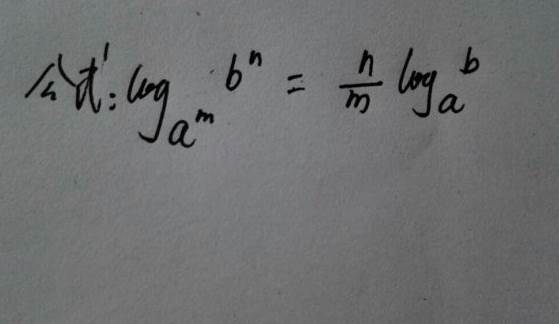 公式:log_{a^m} b^n = \frac{n}{m} log_a b